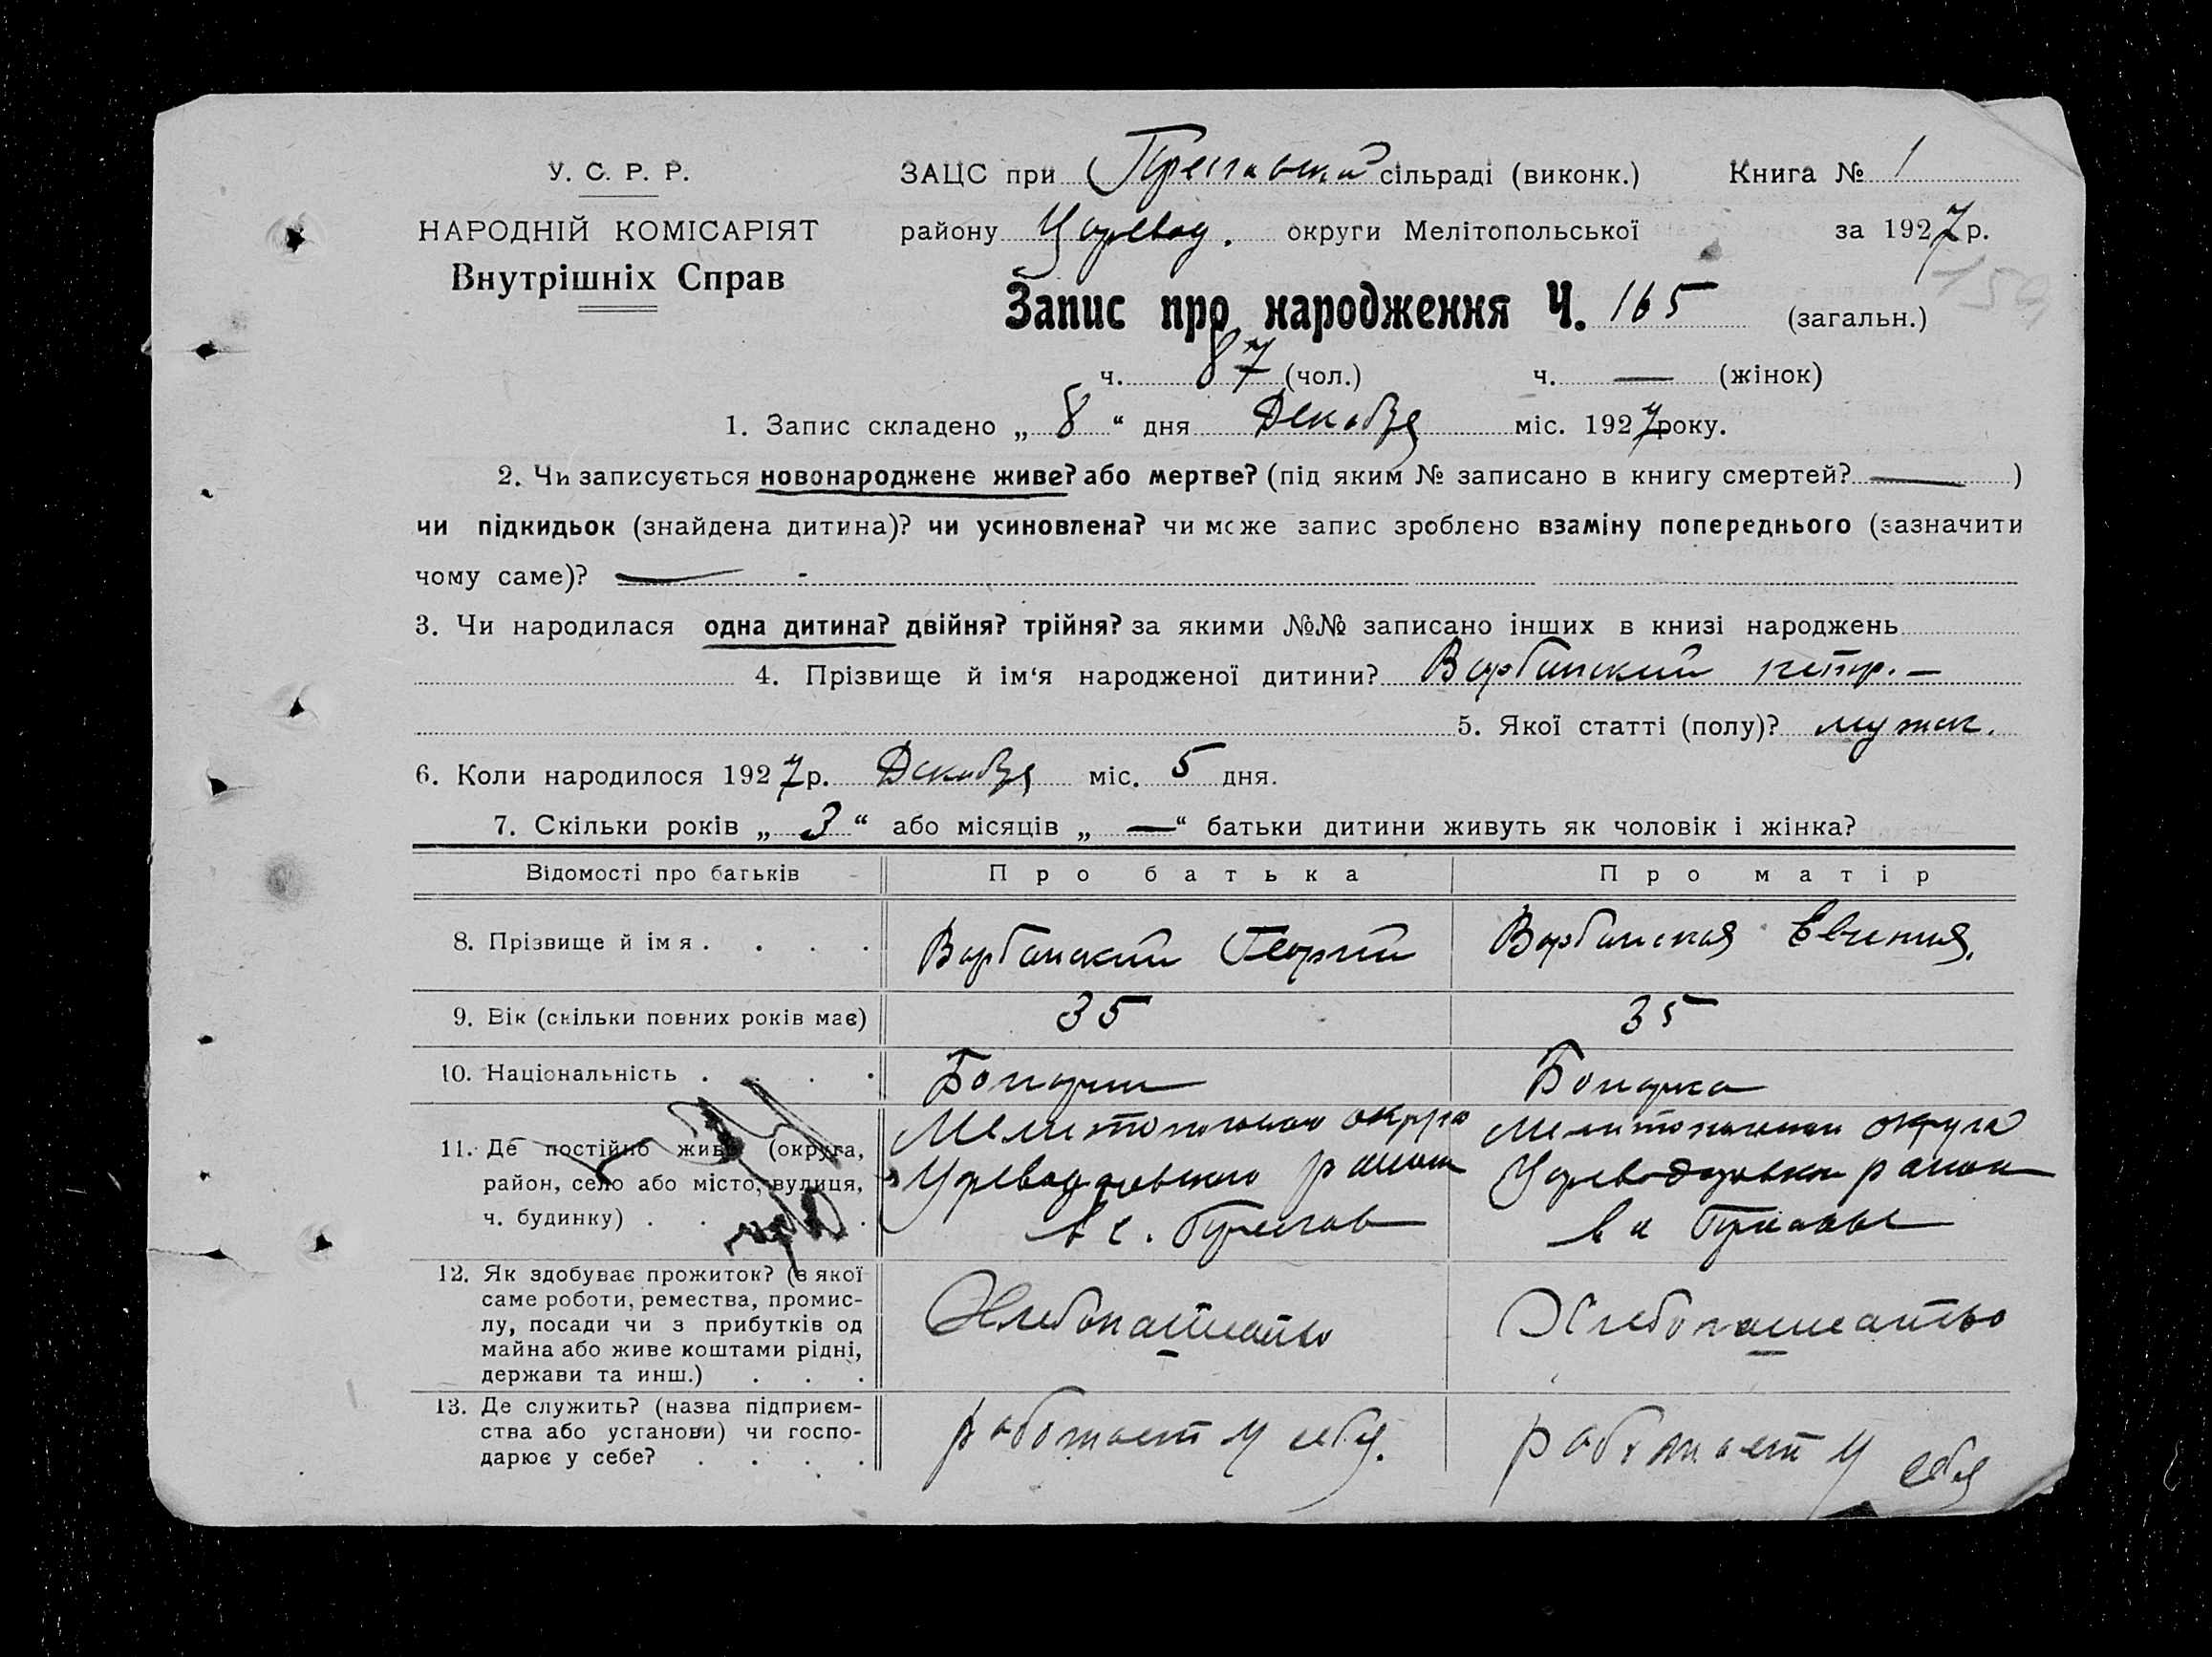 У. С. Р. Р.
НАРОДНІЙ КОМІСАРІЯТ
Внутрішніх Справ
ЗАЦС при Преславській сільраді (виконк.) Книга № 1
району Царевод. округи Мелітопольської за 1927 р.
159
Запис про народження Ч. 165 (загальн.)
ч. 87 (чол.) ч. — (жінок)
1. Запис складено „ 8 “ дня Декабря міс. 1927 року.
2. Чи записується новонароджене живе? або мертве? (під яким № записано в книгу смертей? — )
чи підкидьок (знайдена дитина)? чи усиновлена? чи може запис зроблено взаміну попереднього (зазначити
чому саме)? —
3. Чи народилася одна дитина? двійня? трійня? за якими №№ записано інших в книзі народжень
4. Прізвище й ім‘я народженої дитини? Варбанский петр. —
5. Якої статті (полу)? мужск.
6. Коли народилося 1927 р. Декабря міс. 5 дня.
7. Скільки років „ 3 “ або місяців „ — “ батьки дитини живуть як чоловік і жінка?
Відомості про батьків Про батька Про матір
8. Прізвище й імя . . . . Варбанский Георгий Варбанская Евгения.
9. Вік (скільки повних років має) 35 35
10. Національність . . . . Болгарин Болгарка
11. Де постійно живе (округа,
район, село або місто, вулиця,
ч. будинку) . . .
Мелитопольского округа
Цареводаровского района
в с. Преслав
Мелитопольского округа
Цареводаровского района
в с Преславе
12. Як здобуває прожиток? (з якої
саме роботи, ремества, промис-
лу, посади чи з прибутків од
майна або живе коштами рідні,
держави та инш.) . . .
Хлебопашество
Хлебопашество
13. Де служить? (назва підприєм-
ства або установи) чи госпо-
дарює у себе? . . . .
работает у себя.
работает у себя